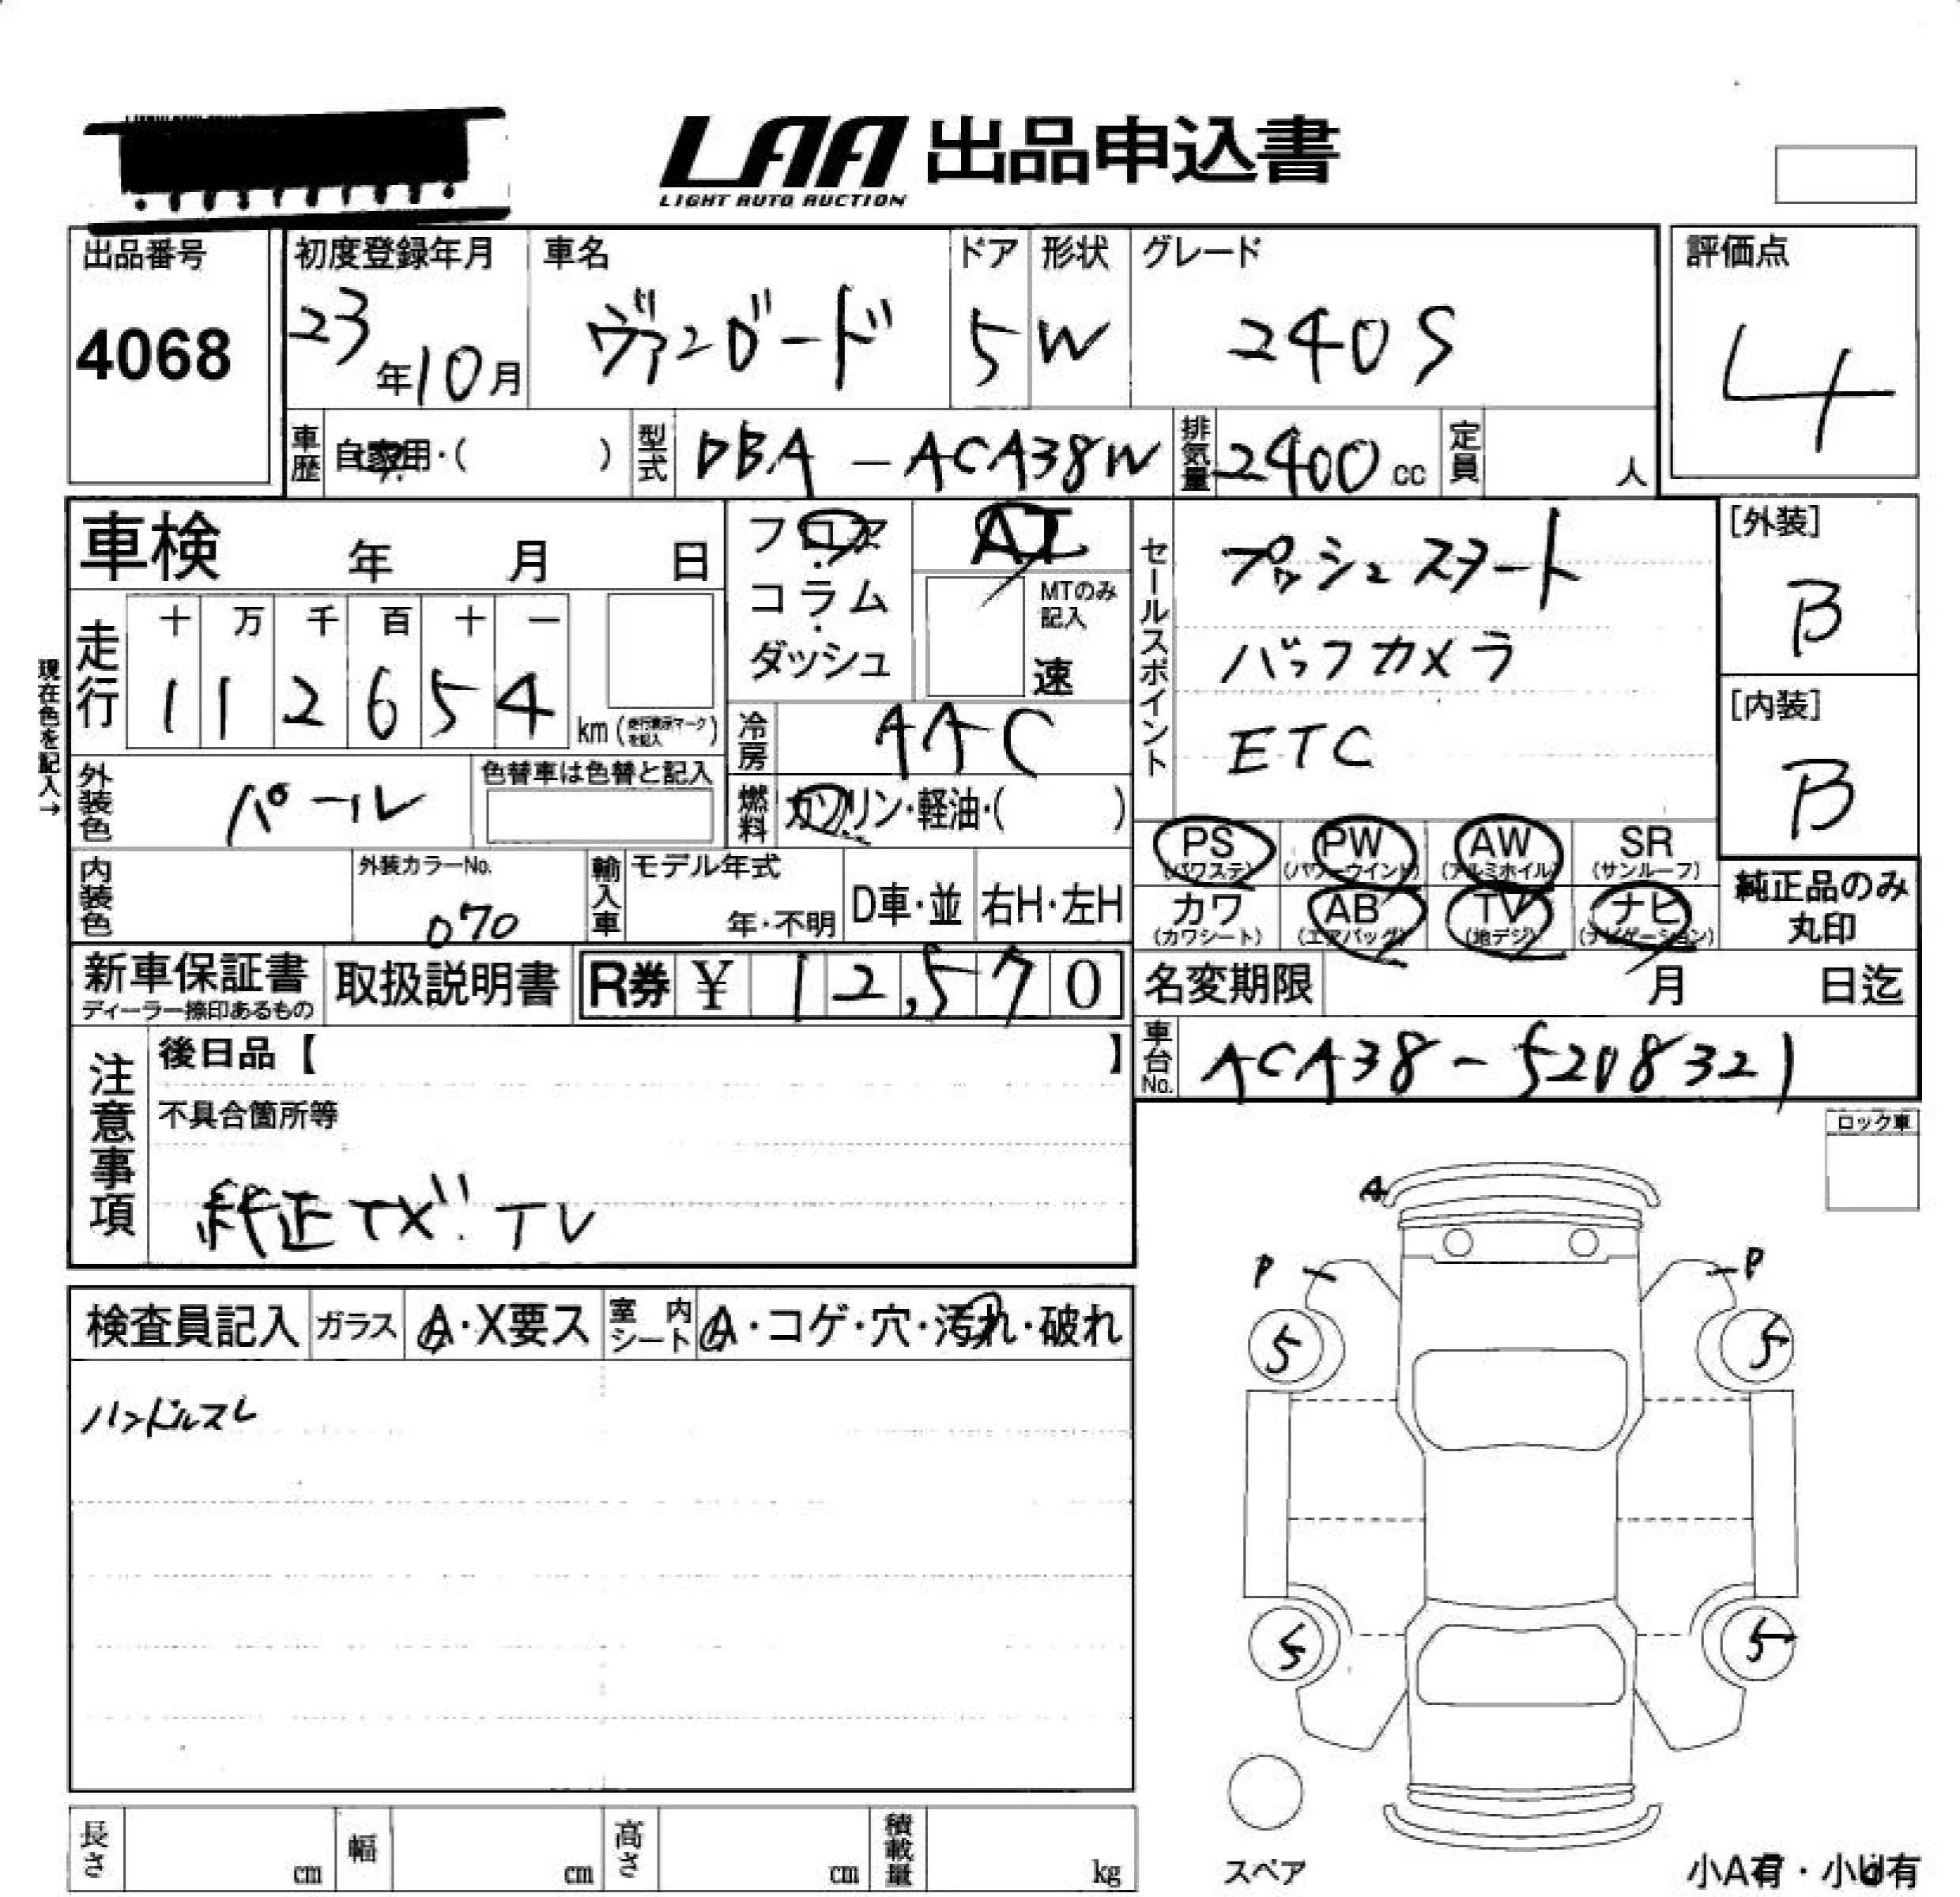 LAA 出品申込書
LIGHT AUTO AUCTION
出品番号
4068
初度登録年月
23年10月
車名
ヴァンガード
ドア
5
形状
W
グレード
240S
評価点
4
車歴 自家用・( )
型式 DBA-ACA38W
排気量 2400cc
定員 人
車検 年 月 日
フロア・コラム・ダッシュ
AT
MTのみ記入
速
走行
十 万 千 百 十 一
1 1 2 6 5 4 km (走行表示マークを記入)
現在色を記入→
冷房 AAC
燃料 ガソリン・軽油・( )
外装色 パール
色替車は色替と記入
内装色
外装カラーNo.
070
輸入車
モデル年式
年・不明
D車・並
右H・左H
セールスポイント
プッシュスタート
バックカメラ
ETC
[外装]
B
[内装]
B
PS (パワステ)
PW (パワーウインド)
AW (アルミホイル)
SR (サンルーフ)
カワ (カワシート)
AB (エアバッグ)
TV (地デジ)
ナビ (ナビゲーション)
純正品のみ丸印
新車保証書
ディーラー捺印あるもの
取扱説明書
R券 ¥ 12,570
名変期限 月 日迄
車台No. ACA38-5208321
注意事項
後日品【 】
不具合箇所等
純正 TV
ロック車
検査員記入
ガラス A・X要ス
室内シート A・コゲ・穴・汚れ・破れ
ハンドルスレ
A
P P
5 5
5 5
スペア
小A有・小U有
長さ cm
幅 cm
高さ cm
積載量 kg